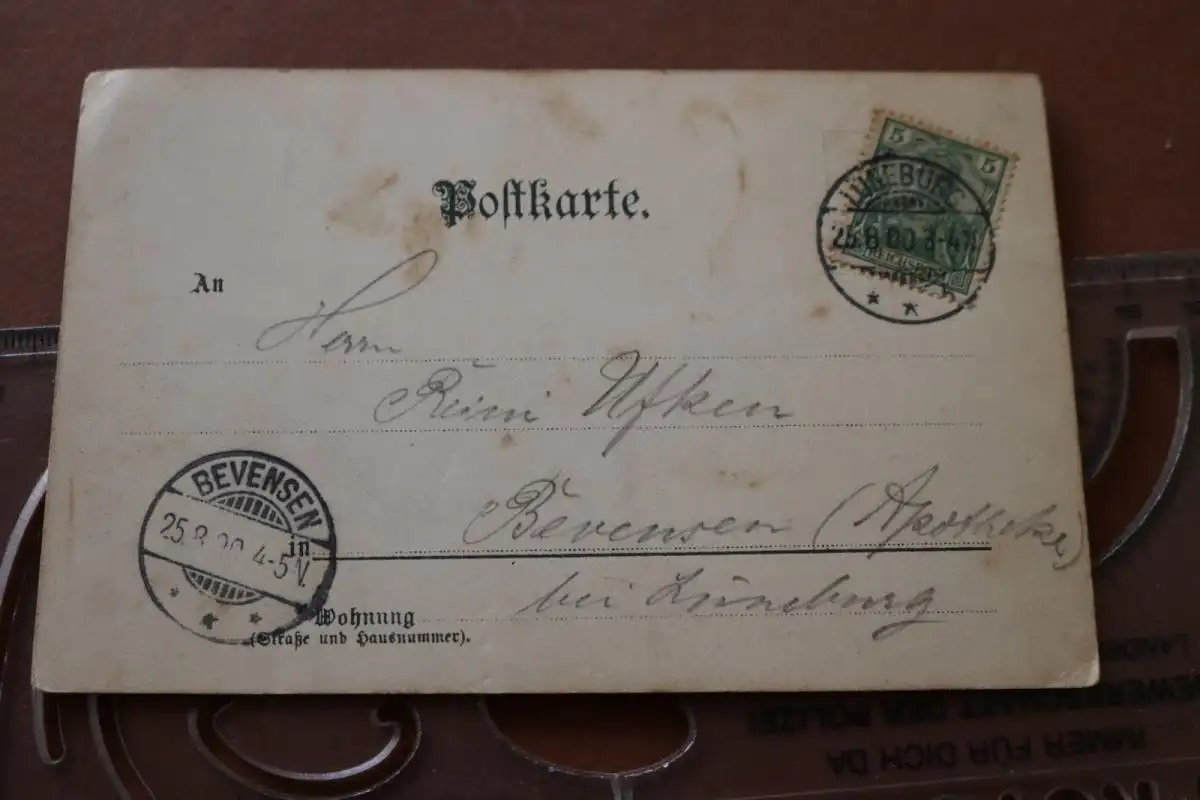 Postkarte.
5 5
REICHSPOST
LÜNEBURG
25.8.00 3-4N
An
Herrn
Reini Ufken
BEVENSEN
25.8.00 4-5V.
Bevensen (Apotheke)
in
bei Lüneburg
Wohnung
(Straße und Hausnummer).
IMMER FÜR DICH DA
GEWERKSCHAFT DER POLIZEI